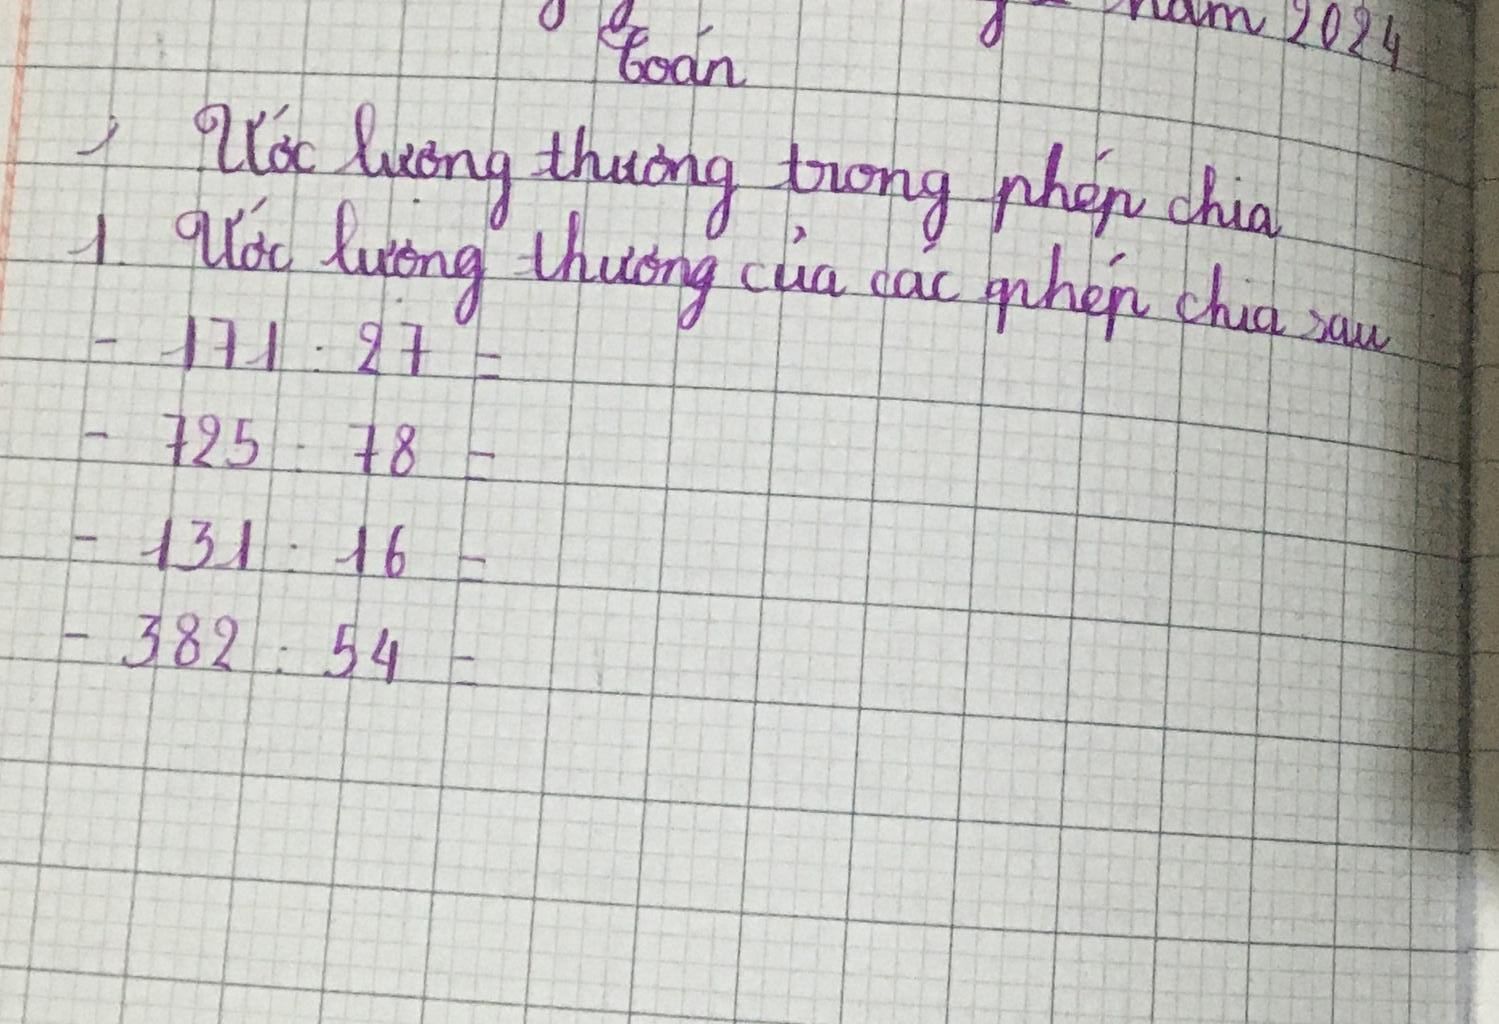 năm 2024
Toán
Ước lượng thương trong phép chia
1. Ước lượng thương của các phép chia sau
- 171 : 27 =
- 725 : 78 =
- 131 : 16 =
- 382 : 54 =